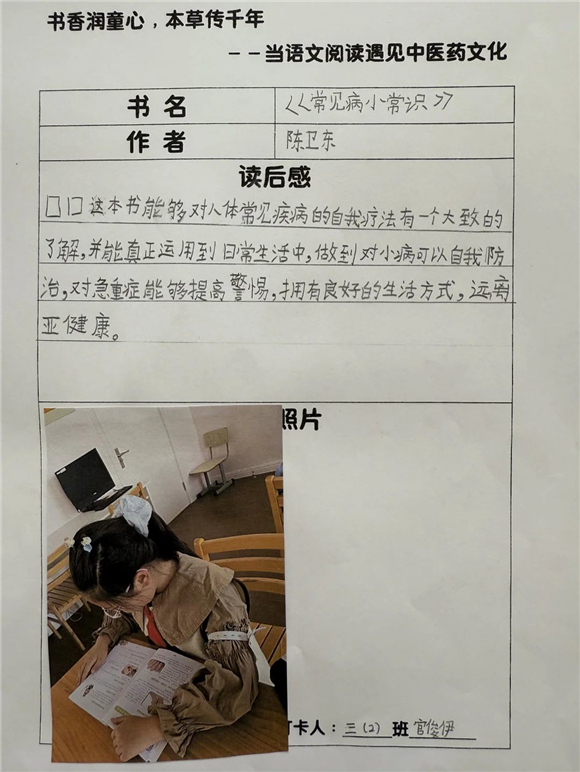 书香润童心，本草传千年
——当语文阅读遇见中医药文化
书名 《常见病小常识》
作者 陈卫东
读后感
口口这本书能够对人体常见疾病的自我疗法有一个大致的
了解,并能真正运用到日常生活中,做到对小病可以自我防
治,对急重症能够提高警惕,拥有良好的生活方式,远离
亚健康。
照片
卡人：三(2)班官俊伊